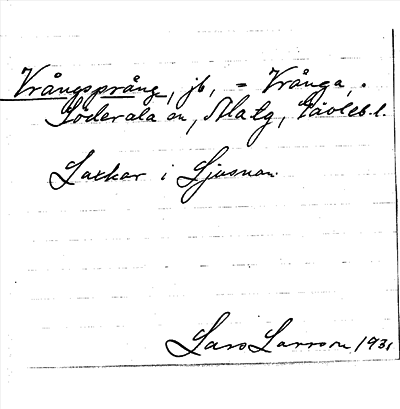 Vrångsprång, jb, = Vrånga,.
Söderala sn, Alatg, Gävleb. l.
Laxkar i Ljusnan.
Lars Larsson 1931